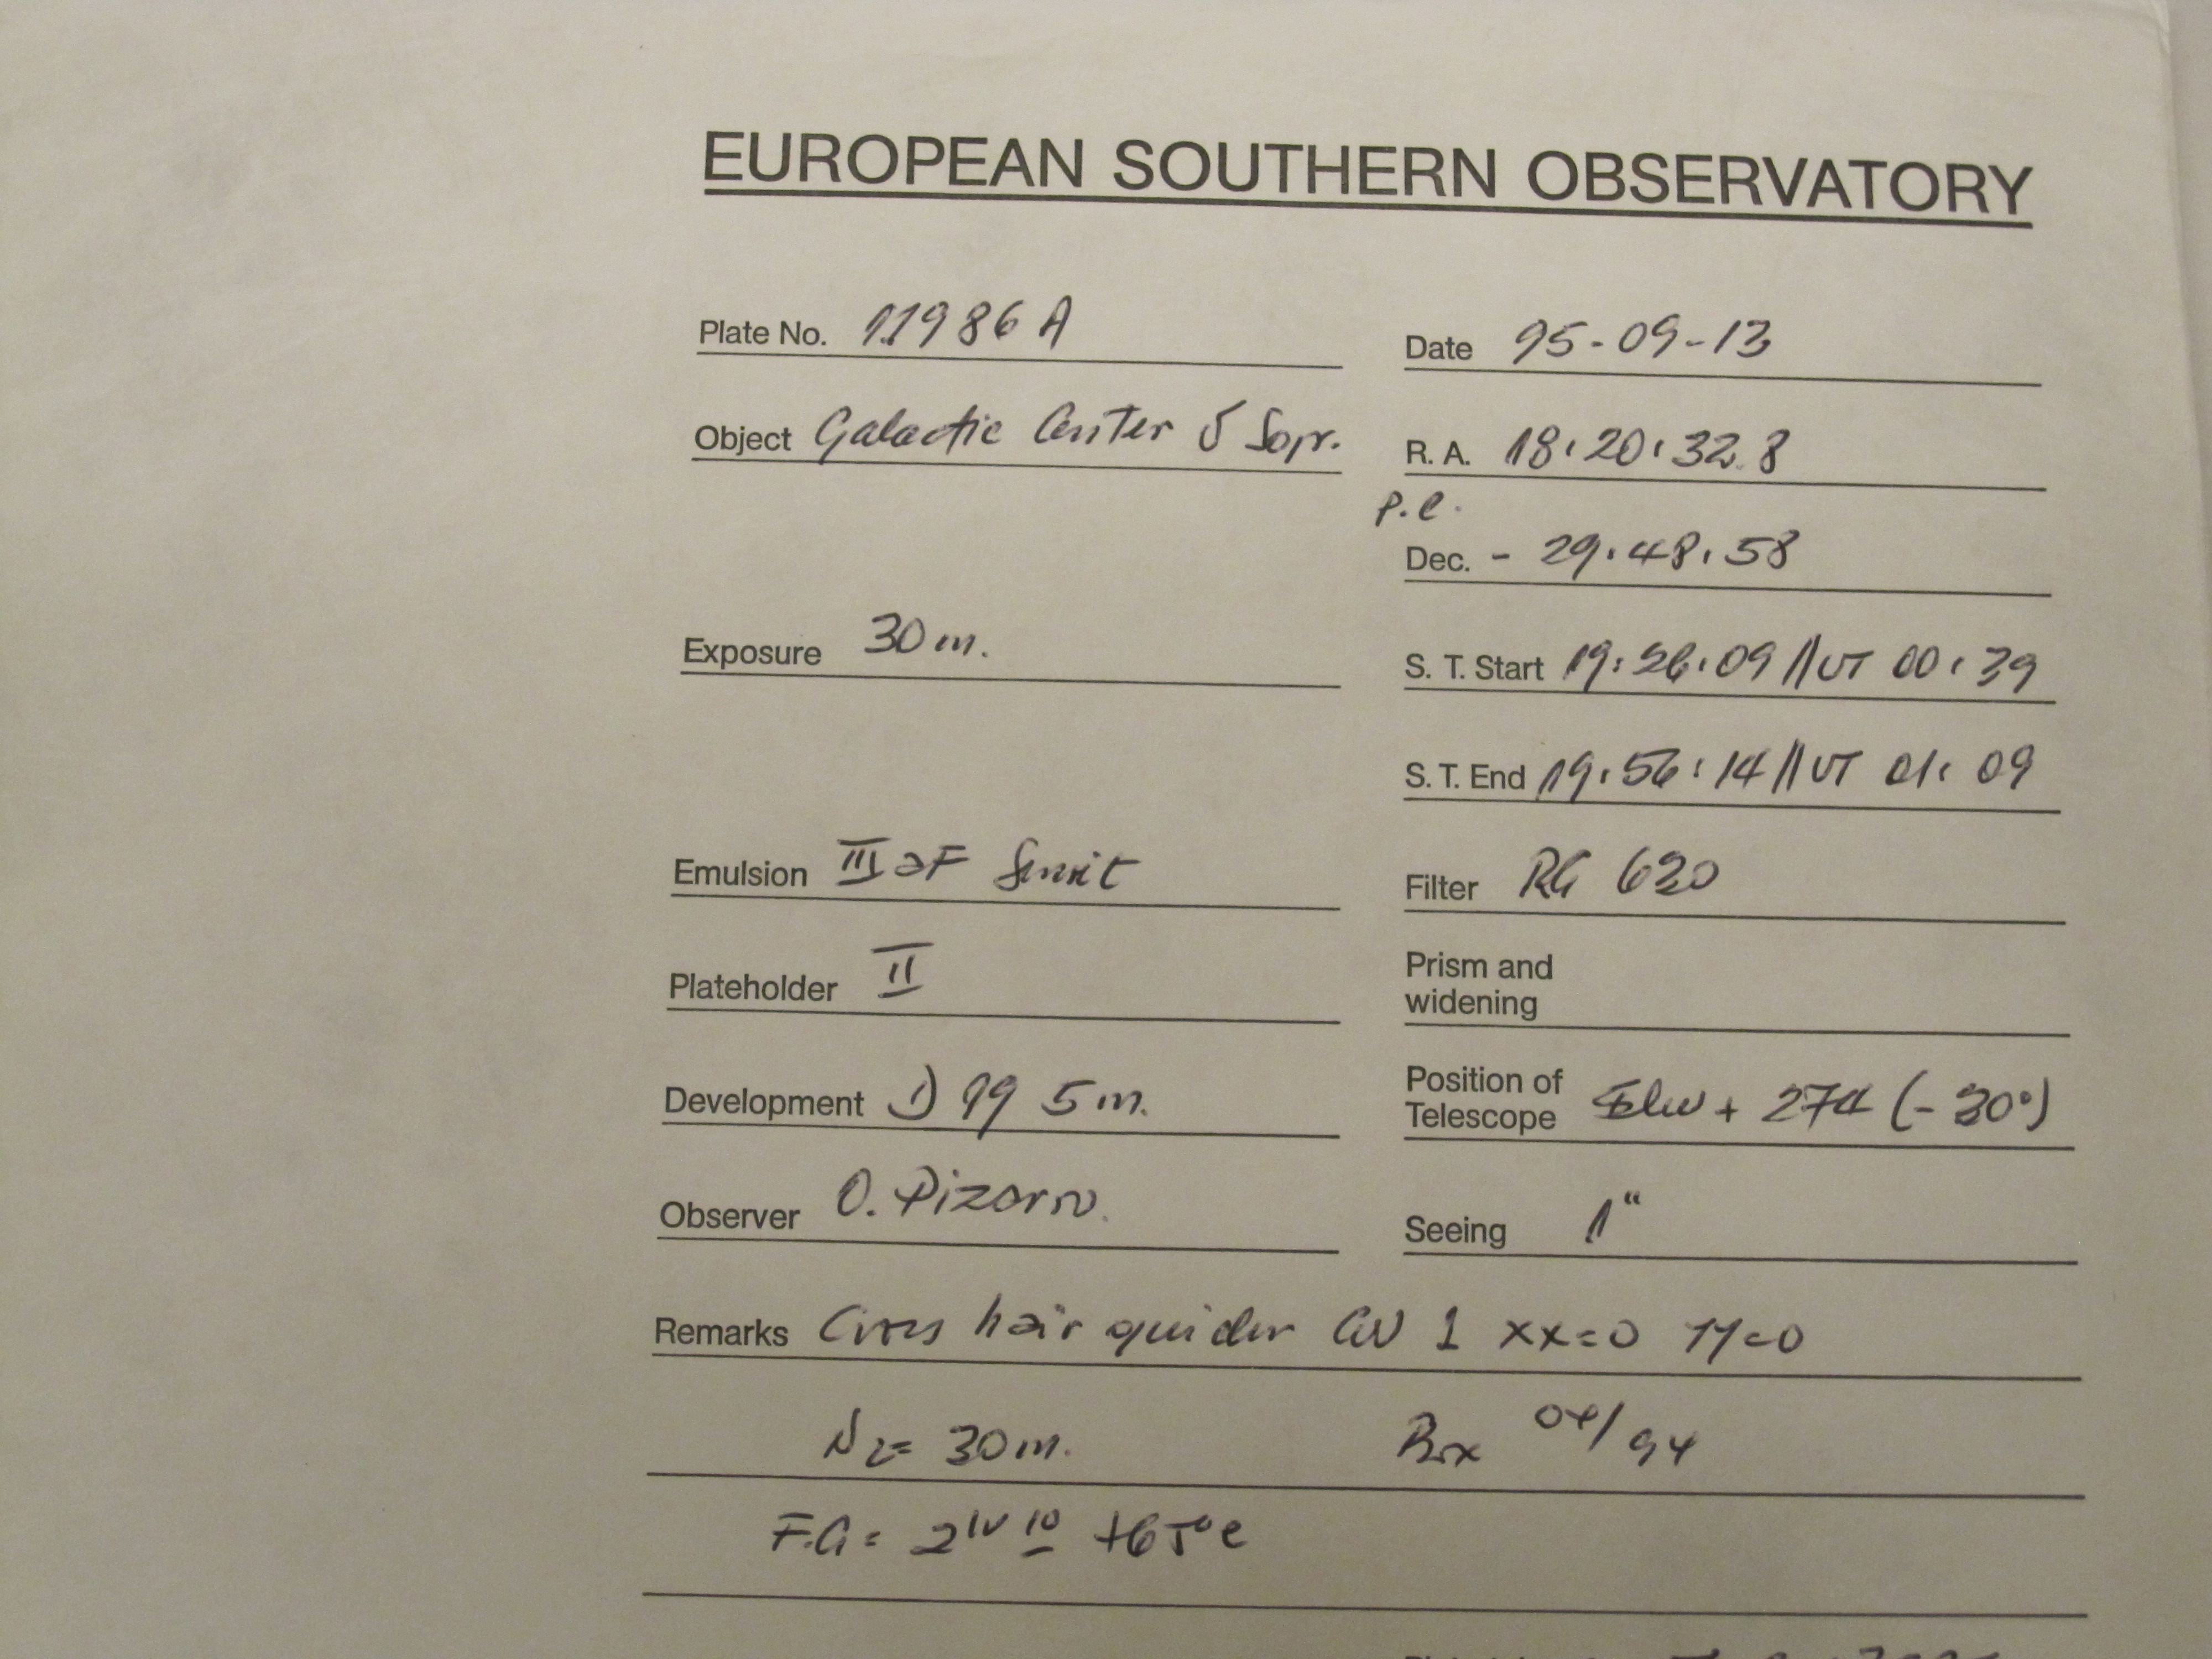 EUROPEAN SOUTHERN OBSERVATORY
Plate No. 11986 A
Date 95-09-13
Object Galactic Center
R. A. 18:20:32.8
P.C.
Dec. - 29:48:58
Exposure 30 m.
S. T. Start 19:26:09 // UT 00:39
S. T. End 19:56:14 // UT 01:09
Emulsion III aF
Filter RG 630
Plateholder II
Prism and
widening
Development 1) 19 5 m.
Position of
Telescope + 274 (-30°)
Observer O. Pizarro.
Seeing 1"
Remarks Cross hair guider 1 xx=0 yy=0
N2= 30 m.
Box 04/94
F.G = 2